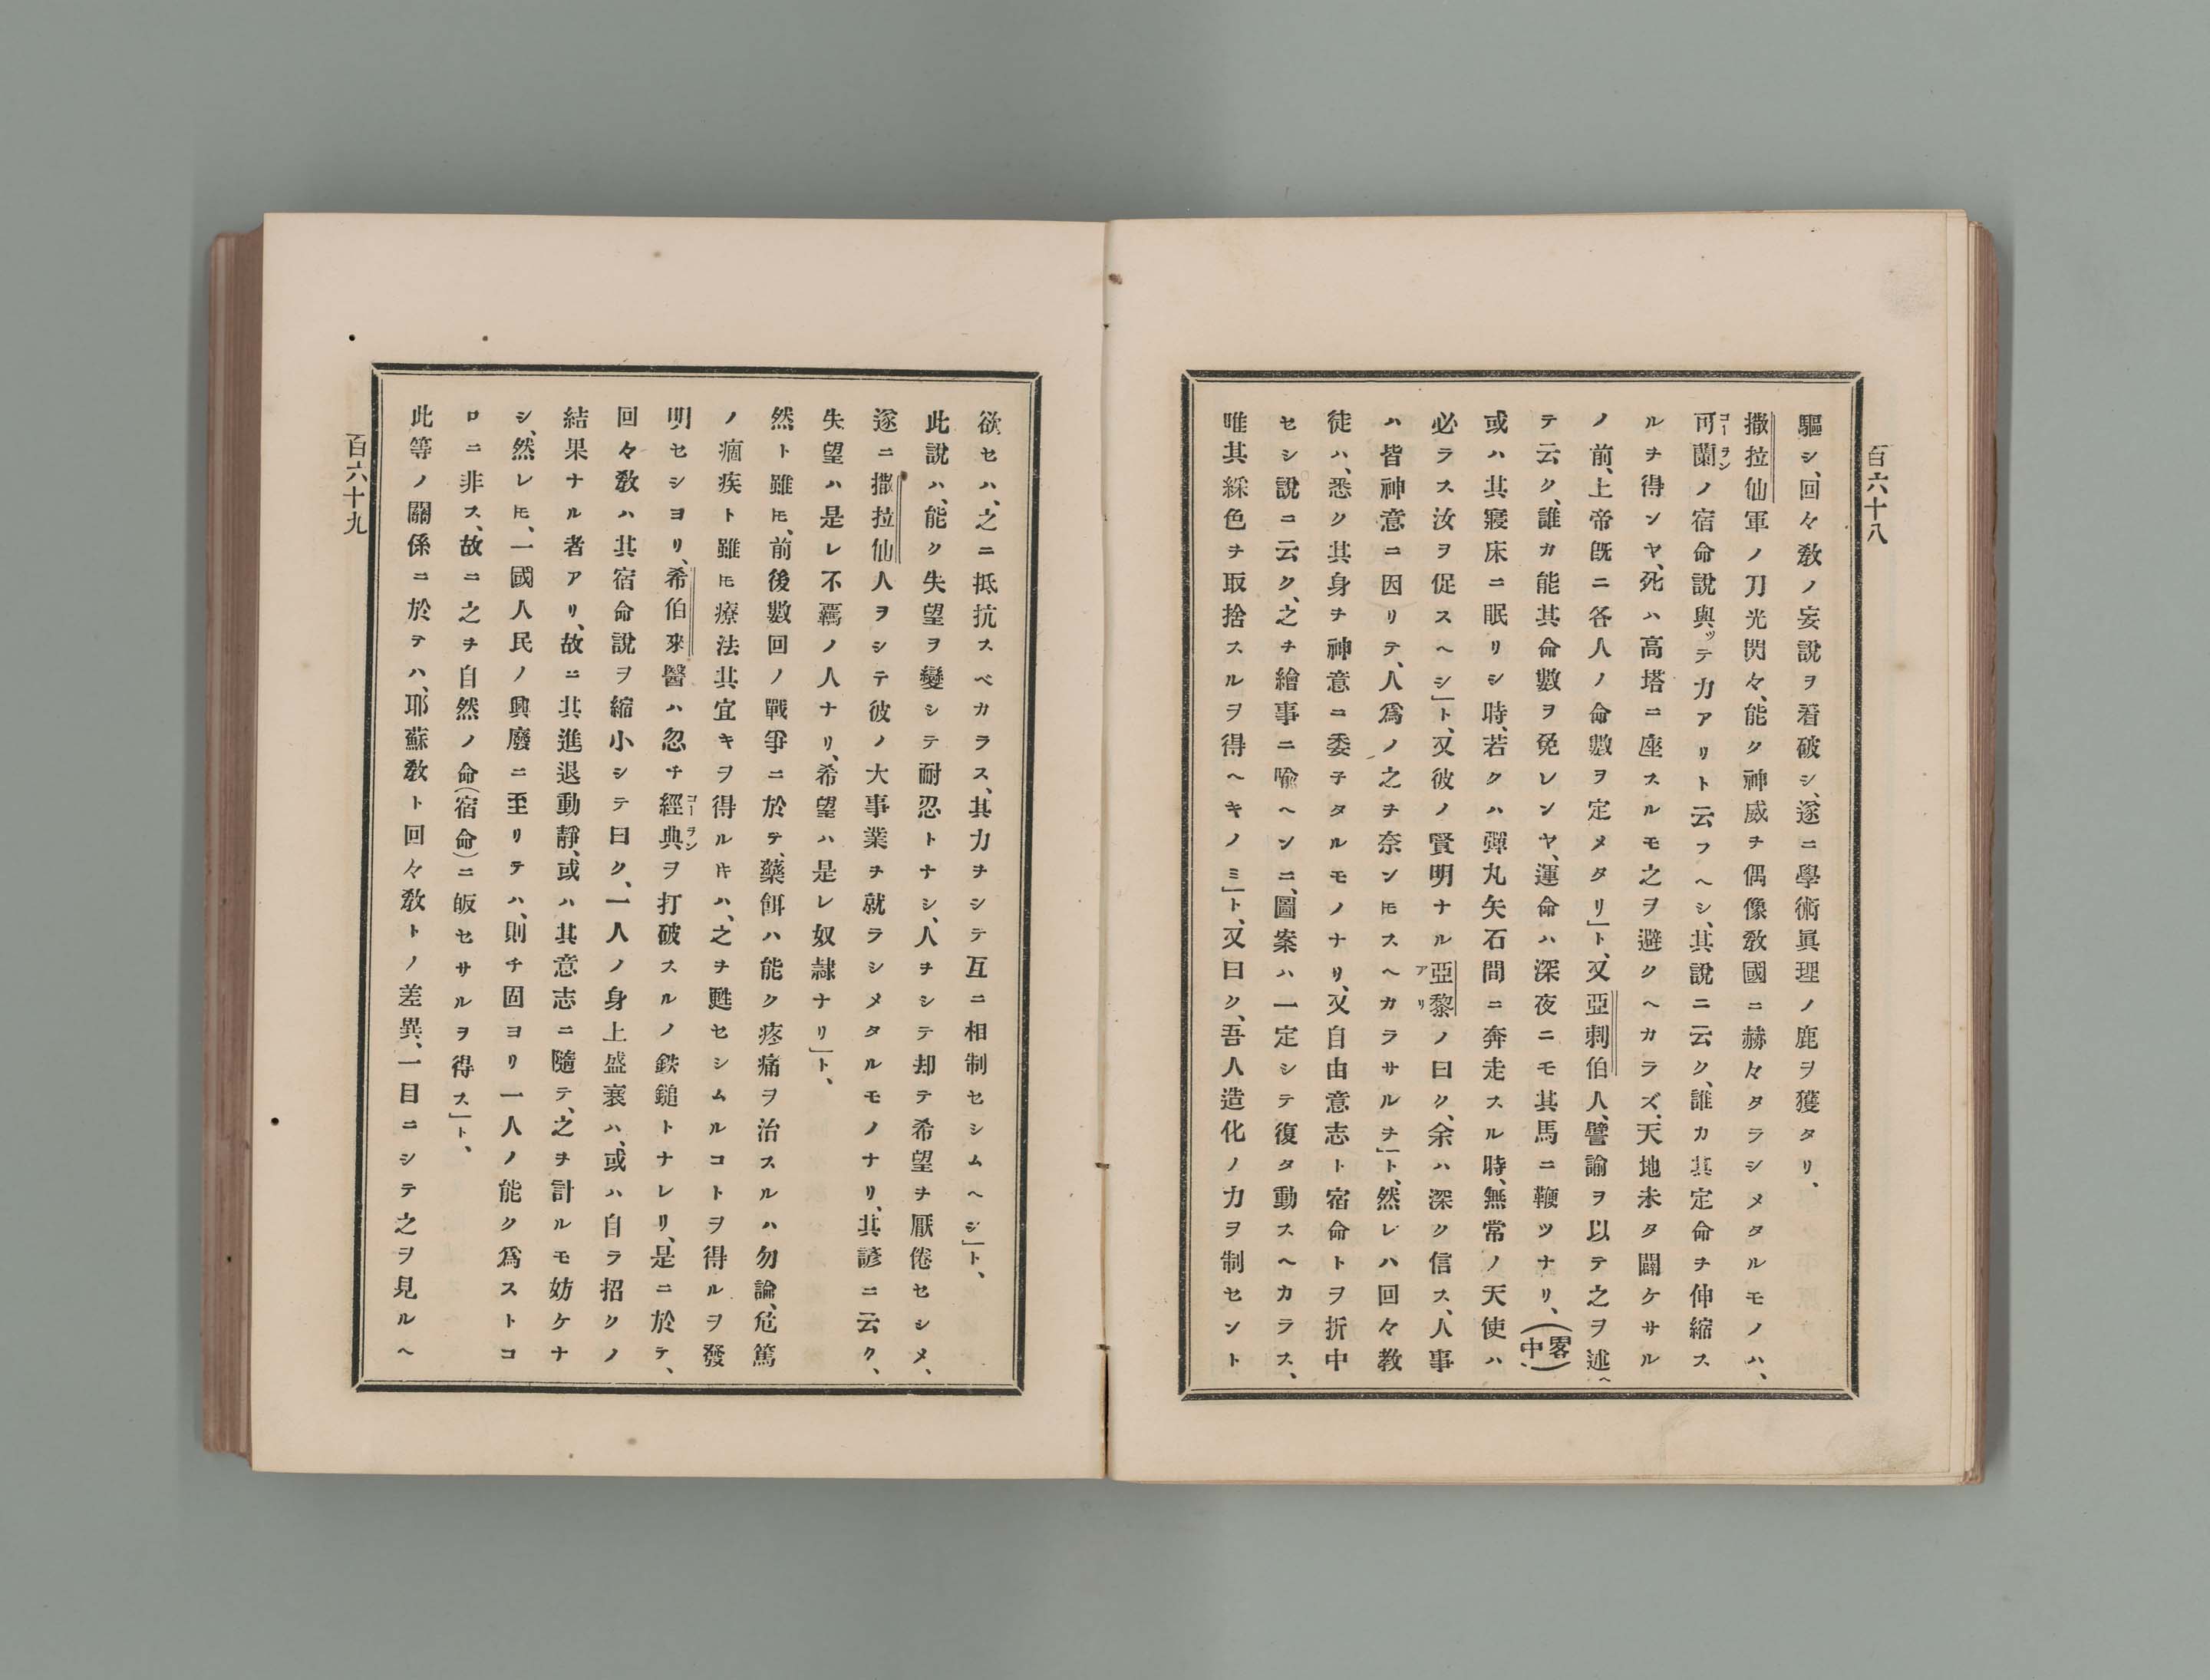 百六十八
驅シ、回々敎ノ妄說ヲ看破シ、遂ニ學術眞理ノ鹿ヲ獲タリ、
撒拉仙軍ノ刀光閃々、能ク神威ヲ偶像敎國ニ赫々タラシメタルモノハ、
可蘭ノ宿命說與ッテ力アリト云フヘシ、其說ニ云ク、誰カ其定命ヲ伸縮ス
コーラン
ルヲ得ンヤ、死ハ高塔ニ座スルモ之ヲ避クヘカラズ、天地未タ闢ケサル
ノ前、上帝既ニ各人ノ命數ヲ定メタリ」ト、又亞刺伯人、譬諭ヲ以テ之ヲ述ヘ
テ云ク、誰カ能其命數ヲ免レンヤ、運命ハ深夜ニモ其馬ニ鞭ツナリ、(中畧)、
或ハ其寢床ニ眠リシ時、若クハ彈丸矢石間ニ奔走スル時、無常ノ天使ハ
必ラス汝ヲ促スヘシ」ト、又彼ノ賢明ナル亞黎ノ曰ク、余ハ深ク信ス、人事
アリ
ハ皆神意ニ因リテ、人爲ノ之ヲ奈ンヒスヘカラサルヲ」ト、然レハ回々教
徒ハ、悉ク其身ヲ神意ニ委子タルモノナリ、又自由意志ト宿命トヲ折中
セシ說ニ云ク、之ヲ繪事ニ喩ヘンニ、圖案ハ一定シテ復タ動スヘカラス、
唯其綵色ヲ取捨スルヲ得ヘキノミ」ト、又曰ク、吾人造化ノ力ヲ制セント
欲セハ、之ニ抵抗スベカラス、其力ヲシテ互ニ相制セシムヘシ」ト、
此說ハ、能ク失望ヲ變シテ耐忍トナシ、人ヲシテ却テ希望ヲ厭倦セシメ、
遂ニ撒拉仙人ヲシテ彼ノ大事業ヲ就ラシメタルモノナリ、其諺ニ云ク、
失望ハ是レ不羈ノ人ナリ、希望ハ是レ奴隷ナリ」ト、
然ト雖ヒ、前後數回ノ戰爭ニ於テ、藥餌ハ能ク疼痛ヲ治スルハ勿論、危篤
ノ痼疾ト雖ヒ療法其宜キヲ得ルキハ、之ヲ甦セシムルコトヲ得ルヲ發
明セシヨリ、希伯來醫ハ忽チ經典ヲ打破スルノ鉄鎚トナレリ、是ニ於テ、
コーラン
回々敎ハ其宿命說ヲ縮小シテ曰ク、一人ノ身上盛衰ハ、或ハ自ラ招クノ
結果ナル者アリ、故ニ其進退動靜、或ハ其意志ニ隨テ、之ヲ計ルモ妨ケナ
シ、然レヒ、一國人民ノ興廢ニ至リテハ、則チ固ヨリ一人ノ能ク爲ストコ
ロニ非ス、故ニ之ヲ自然ノ命(宿命)ニ皈セサルヲ得ス」ト、
此等ノ關係ニ於テハ、耶蘇敎ト回々敎トノ差異、一目ニシテ之ヲ見ルヘ
百六十九